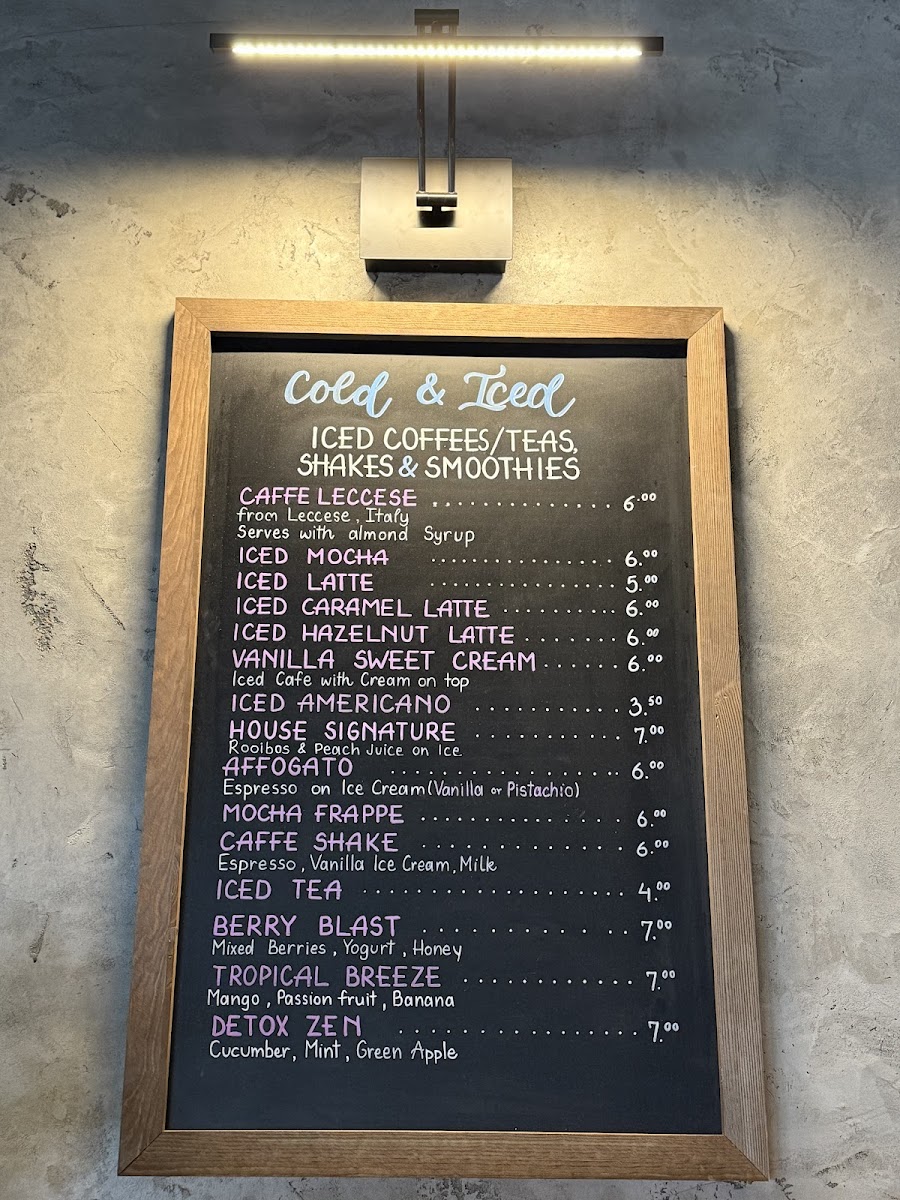 Cold & Iced
ICED COFFEES/TEAS,
SHAKES & SMOOTHIES
CAFFE LECCESE .............. 6.00
from Leccese, Italy
Serves with almond Syrup
ICED MOCHA ................ 6.00
ICED LATTE ................ 5.00
ICED CARAMEL LATTE ......... 6.00
ICED HAZELNUT LATTE ....... 6.00
VANILLA SWEET CREAM ...... 6.00
Iced Cafe with Cream on top
ICED AMERICANO .......... 3.50
HOUSE SIGNATURE .......... 7.00
Rooibos & Peach Juice on Ice
AFFOGATO .................. 6.00
Espresso on Ice Cream (Vanilla or Pistachio)
MOCHA FRAPPE .............. 6.00
CAFFE SHAKE .............. 6.00
Espresso, Vanilla Ice Cream, Milk
ICED TEA .................... 4.00
BERRY BLAST ............ 7.00
Mixed Berries, Yogurt, Honey
TROPICAL BREEZE ............ 7.00
Mango, Passion fruit, Banana
DETOX ZEN .................. 7.00
Cucumber, Mint, Green Apple